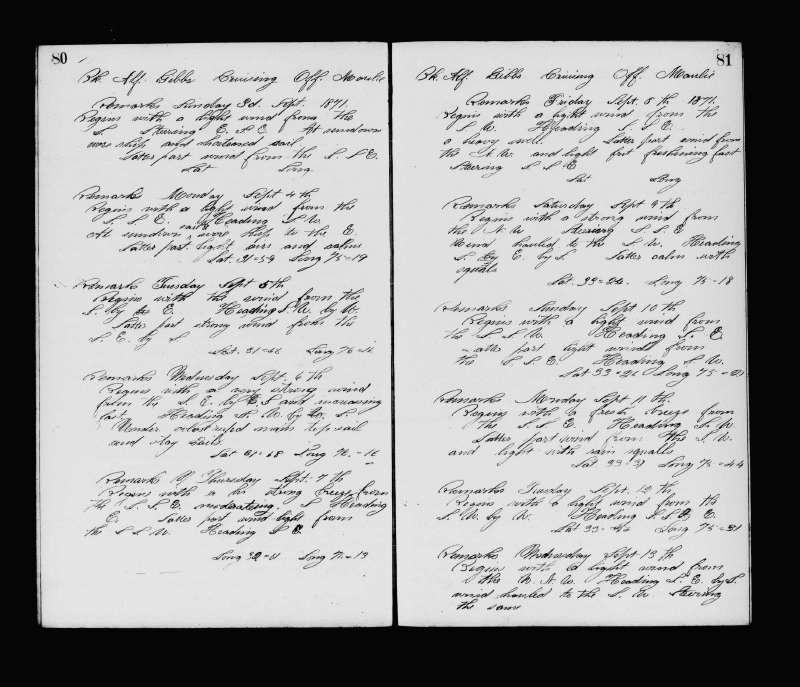 80
Bk. Alf. Gibbs Cruising Off. Maulie
Remarks Sunday 3d. Sept. 1871.
Begins with a light wind from the
S. Steering E. S. E. At sundown
wore ship and shortened sail
Latter part wind from the S. S. E.
Lat Long.
Remarks Monday Sept 4th
Begins with a light wind from the
S. S. E. Heading S. W.
At sundown wore ship to the E.
Latter part light airs and calms
Lat. 31-59 Long 75-19
Remarks Tuesday Sept 5th
Begins with the wind from the
S. by E. Heading S. W. by W.
Latter part strong wind from the
S. E. by S
Lat. 31- Long
Remarks Wednesday Sept. 6th
Begins with a very strong wind
from the S. E. by E. S and increasing
fast. Heading S. W. by S.
Under close reefed main top sail
and stay sails.
Lat Long
Remarks Thursday Sept. 7th
Begins with a strong breeze from
the S. S. E. moderating. S Heading
E. Latter part wind light from
the S. S. W. Heading S E.
Long 32-11 Long 75-13
81
Bk. Alf. Gibbs Cruising Off. Maulie
Remarks Friday Sept. 8th 1871.
Begins with a light wind from the
S. W. Heading S. S. E.
a heavy swell. Latter part wind from
the N. W. and light but freshening fast
Steering S. S. E
Lat Long
Remarks Saturday Sept 9th
Begins with a strong wind from
the N. W Steering S. S. E
Wind hauled to the S. W. Heading
S. by E. by S. Latter calm with
squalls
Lat. 33-24. Long 75-18
Remarks Sunday Sept 10th
Begins with a light wind from
the S. S. W. Heading S. E.
Latter part light winds from
the S. S. E. Heading S. W.
Lat 33-21 Long 75-21
Remarks Monday Sept 11th.
Begins with a fresh breeze from
the S. S. E. Heading S. W.
Latter part wind from the S. W.
and light with rain squalls
Lat 33-31 Long 75-44
Remarks Tuesday Sept. 12th
Begins with a light wind from the
S. W. by W. Heading S. S. E.
Lat 33-42 Long 75-31
Remarks Wednesday Sept 13th
Begins with a light wind from
the W. N. W. Heading S. E. by S.
wind hauled to the S. W. Steering
the same